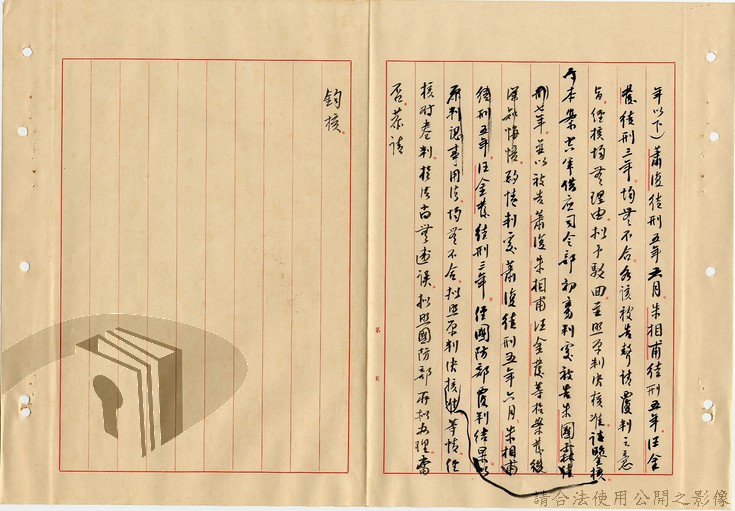 年以下）蕭俊徒刑五年六月朱相甫徒刑五年汪金
葆徒刑三年均無不合各該被告聲請覆判之意
旨經核均無理由擬予駁回並照原判決核准請鑒核
本案空軍供应司令部初審判處被告朱國霖徒
刑七年並以被告蕭俊朱相甫汪金葆等於案發後
深知悔悟酌情判處蕭俊徒刑五年六月朱相甫
徒刑五年汪金葆徒刑三年經國防部覆判結果以
原判認事用法均無不合擬照原判決核准等情經
核對卷判於法尚無違誤擬照國防部所擬办理當
否恭請
鈞核
第 頁
請合法使用公開之影像